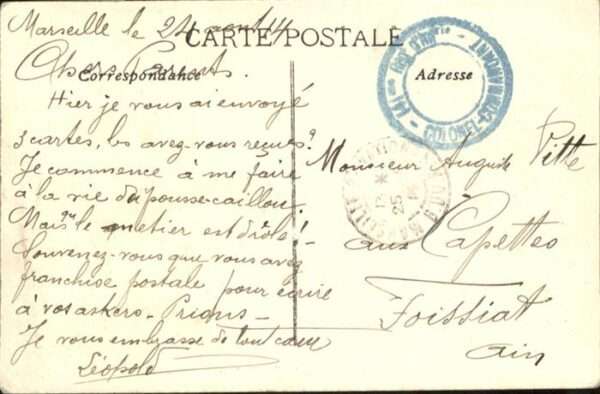 Marseille le 24 août 14
CARTE POSTALE
Correspondance
Adresse
Chers Parents.
Hier je vous ai envoyé
3 cartes, les avez-vous reçues?
Je commence à me faire
à la vie du pousse-caillou.
Mais que le métier est drôle!
Souvenez-vous que vous avez
franchise postale pour écrire
à vos
Je vous embrasse de tout cœur
Léopold
Monsieur Auguste Pitte
aux Capettes
Foissiat
Ain
COLONEL-COMMANDANT
MARSEILLE
25